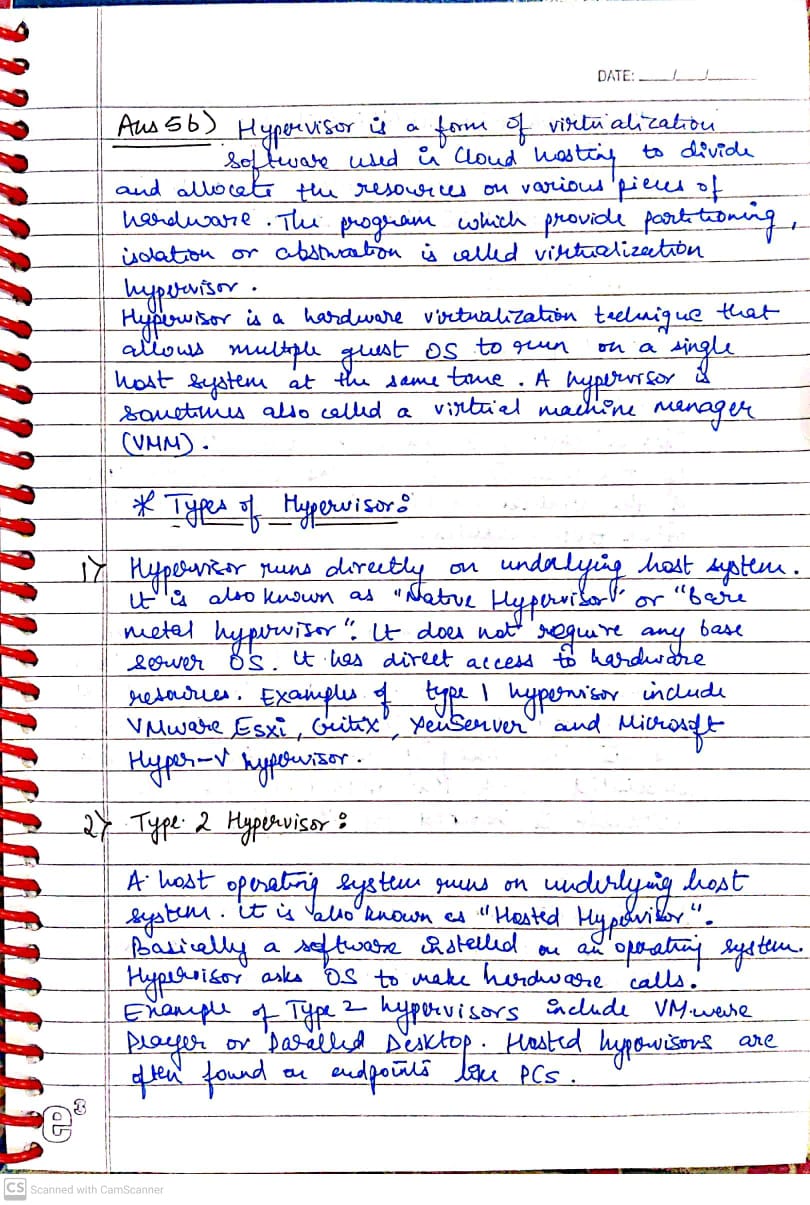 DATE: __/__/__
Ans 5b) Hypervisor is a form of virtualization
software used in Cloud hosting to divide
and allocate the resources on various pieces of
hardware. The program which provide partitioning,
isolation or abstraction is called virtualization
hypervisor.
Hypervisor is a hardware virtualization technique that
allows multiple guest OS to run on a single
host system at the same time. A hypervisor is
sometimes also called a virtual machine manager
(VMM).
* Types of Hypervisor:
1) Hypervisor runs directly on underlying host system.
It is also known as "Native Hypervisor" or "bare
metal hypervisor". It does not require any base
server OS. It has direct access to hardware
resources. Examples of type 1 hypervisor include
VMware Esxi, Critix, XenServer and Microsoft
Hyper-V hypervisor.
2) Type 2 Hypervisor:
A host operating system runs on underlying host
system. It is also known as "Hosted Hypervisor".
Basically a software installed on an operating system.
Hypervisor asks OS to make hardware calls.
Example of Type 2 hypervisors include VMware
Player or Parallel Desktop. Hosted hypervisors are
often found on endpoints like PCs.
e3
CS Scanned with CamScanner